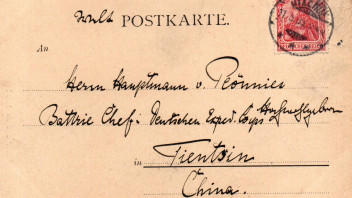 POSTKARTE.
An
Herrn Hauptmann v. Rönnies
Battrie Chef. Deutschen Exped. Corps Hochwohlgeboren
in Tientsin
China.